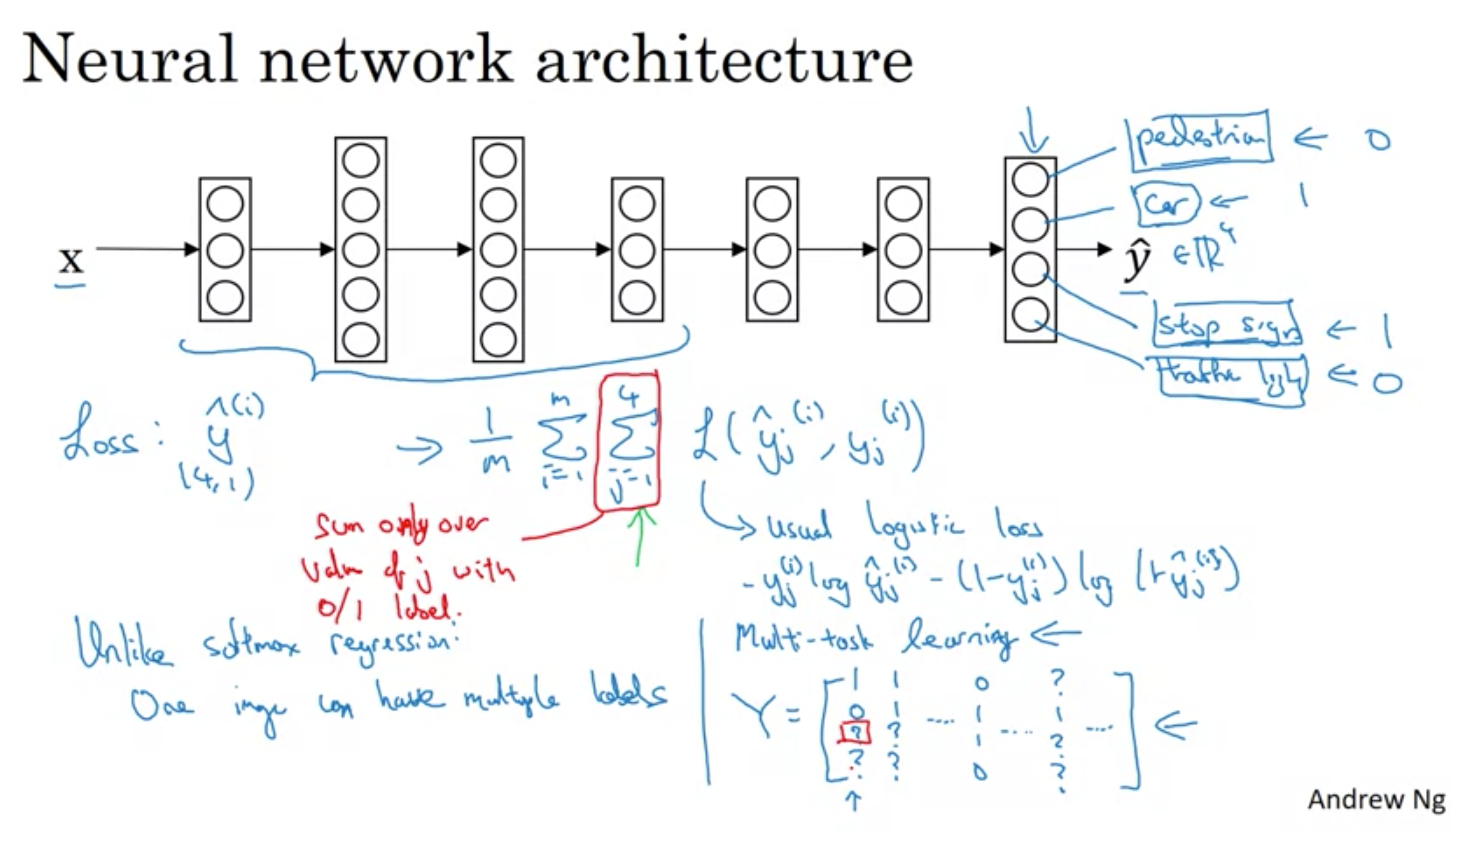 Neural network architecture
pedestrian ← 0
car ← 1
x
ŷ ∈ ℝ⁴
stop sign ← 1
traffic light ← 0
Loss: ŷ^(i) → 1/m Σ_{i=1}^{m} Σ_{j=1}^{4} ℒ(ŷ_j^(i), y_j^(i))
(4,1)
Sum only over
value of j with
0/1 label.
↳ usual logistic loss
- y_j^(i) log ŷ_j^(i) - (1-y_j^(i)) log (1-ŷ_j^(i))
Unlike softmax regression:
One image can have multiple labels
Multi-task learning ←
1 1 0 ?
0 1 .... 1 .... 1 ....
Y = [ ? ? 1 ? ] ←
? ? 0 ?
Andrew Ng